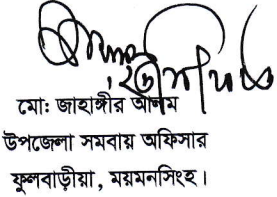 মো: জাহাঙ্গীর আলম
উপজেলা সমবায় অফিসার
ফুলবাড়ীয়া, ময়মনসিংহ।